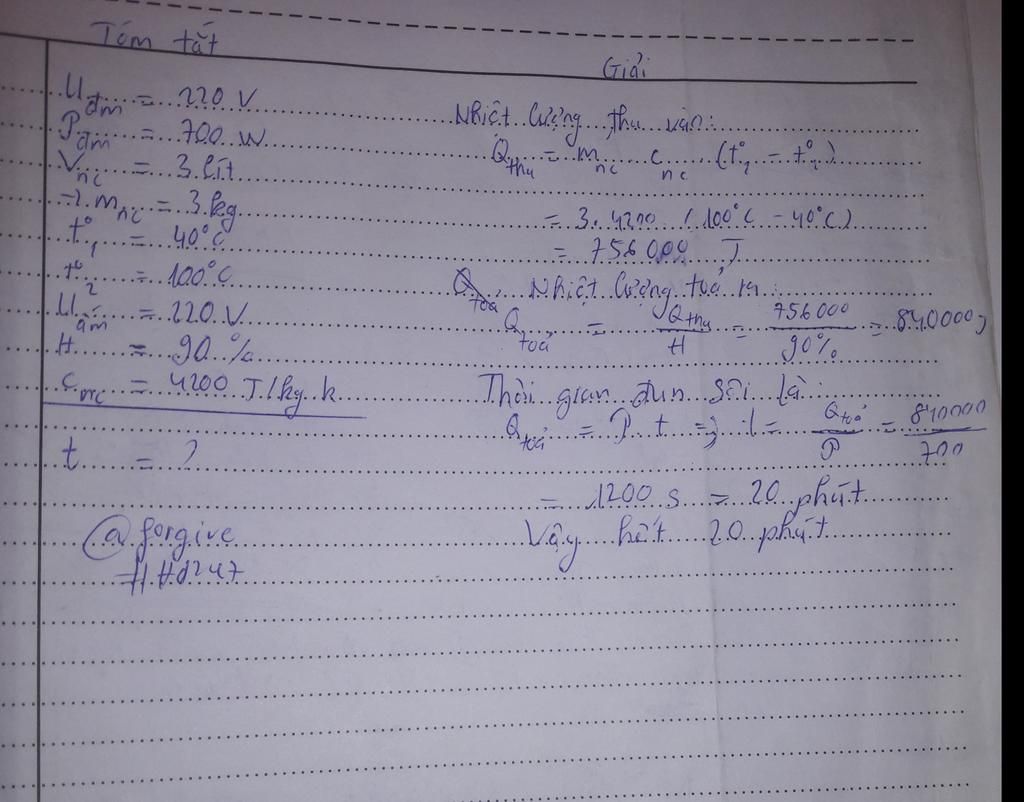 Tóm tắt
U đm = 220 V
P đm = 700 W
V nc = 3 lít
=> m nc = 3 kg
t°1 = 40°C
t°2 = 100°C
U ấm = 220 V
H = 90 %
c nc = 4200 J/kg.k
t = ?
@forgive
#Hd247
Giải
Nhiệt lượng thu vào:
Q thu = m nc c nc (t°2 - t°1)
= 3. 4200 (100°C - 40°C)
= 756000 J
Nhiệt lượng toả ra:
Q toả = Q thu / H = 756000 / 90% = 840000 J
Thời gian đun sôi là:
Q toả = P t => t = Q toả / P = 840000 / 700
= 1200 s = 20 phút
Vậy hết 20 phút